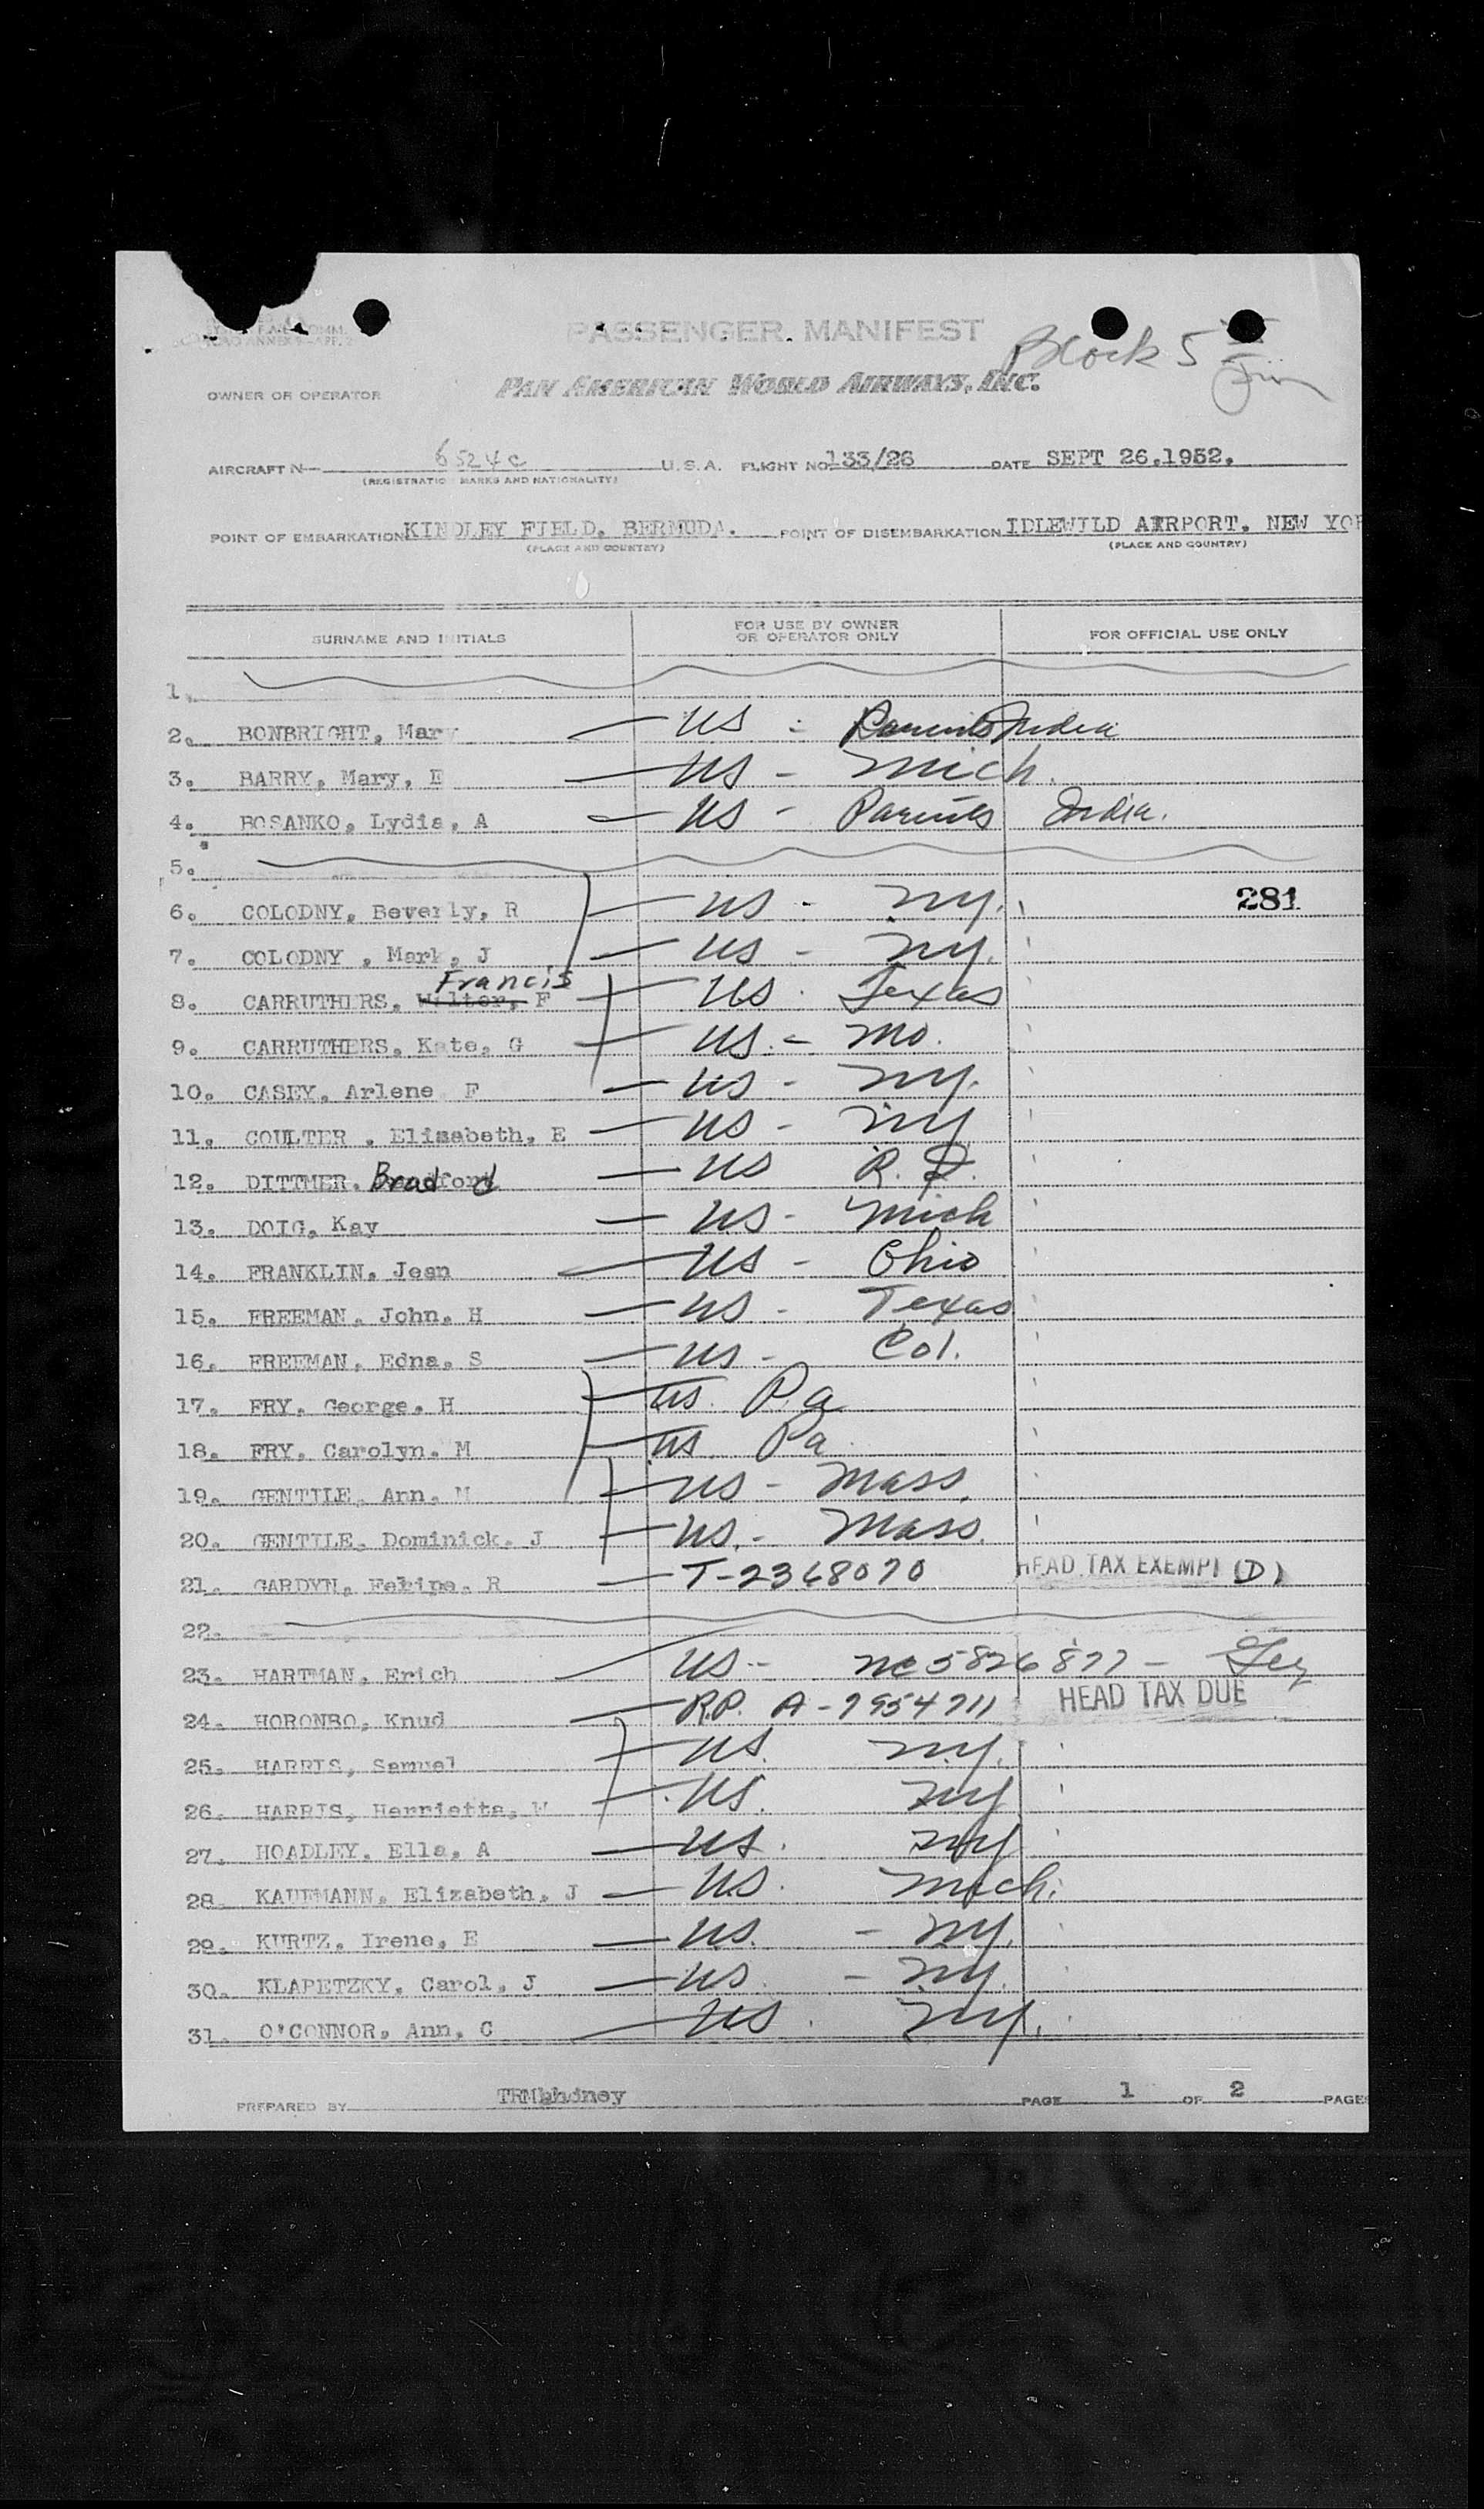 PASSENGER MANIFEST
Block 5
OWNER OR OPERATOR PAN AMERICAN WORLD AIRWAYS, INC.
AIRCRAFT N— 6524C U.S.A. FLIGHT NO 133/26 DATE SEPT 26.1952.
(REGISTRATION MARKS AND NATIONALITY)
POINT OF EMBARKATION KINDLEY FIELD. BERMUDA. POINT OF DISEMBARKATION IDLEWILD AIRPORT. NEW YOR
(PLACE AND COUNTRY) (PLACE AND COUNTRY)
SURNAME AND INITIALS FOR USE BY OWNER OR OPERATOR ONLY FOR OFFICIAL USE ONLY
1.
2. BONBRIGHT, Mary — US - Parents India
3. BARRY, Mary, E — US - Mich.
4. BOSANKO, Lydia, A — US - Parents India.
5.
6. COLODNY, Beverly, R — US - NY. 281
7. COLODNY , Mark, J — US - NY.
Francis
8. CARRUTHERS, Walter, F — US. Texas
9. CARRUTHERS, Kate, G — US. - Mo.
10. CASEY, Arlene F — US - NY.
11. COULTER , Elizabeth, E — US - NY
12. DITTMER. Bradford — US R.I.
13. DOIG, Kay — US - Mich
14. FRANKLIN, Jean — US - Ohio
15. FREEMAN, John, H — US - Texas
16. FREEMAN, Edna, S — US - Col.
17. FRY, George, H — US. Pa
18. FRY, Carolyn. M — US. Pa
19. GENTILE, Ann, M — US - Mass.
20. GENTILE, Dominick. J — US. - Mass.
21. GARDYN, R — T-2368070 HEAD TAX EXEMPT (D)
22.
23. HARTMAN, Erich — US - NC 5826877 -
24. HORONBO, Knud — R.P. A-7954711 HEAD TAX DUE
25. HARRIS, Samuel — US. NY.
26. HARRIS, Harrietta, W — US. NY
27. HOADLEY, Ella, A — US. NY
28. KAUFMANN, Elizabeth, J — US. Mich.
29. KURTZ, Irene, E — US. - NY.
30. KLAPETZKY, Carol, J — US. - NY.
31. O'CONNOR, Ann, C — US. NY.
PREPARED BY TRMahoney PAGE 1 OF 2 PAGE